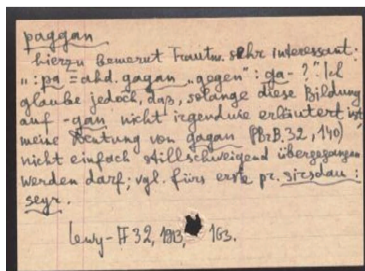 paggan
hierzu bemerkt Trautm. sehr interessant:
„: pa = ahd. gagan „gegen“ : ga- ?“ Ich
glaube jedoch, daß, solange diese Bildung
auf -gan nicht irgendwie erläutert ist
meine Deutung von gagan (PBrB. 32, 140)
nicht einfach stillschweigend übergegangen
werden darf; vgl. fürs erste pr. sirsdau :
seyr.
Lewy - IF 32, 1913, 163.